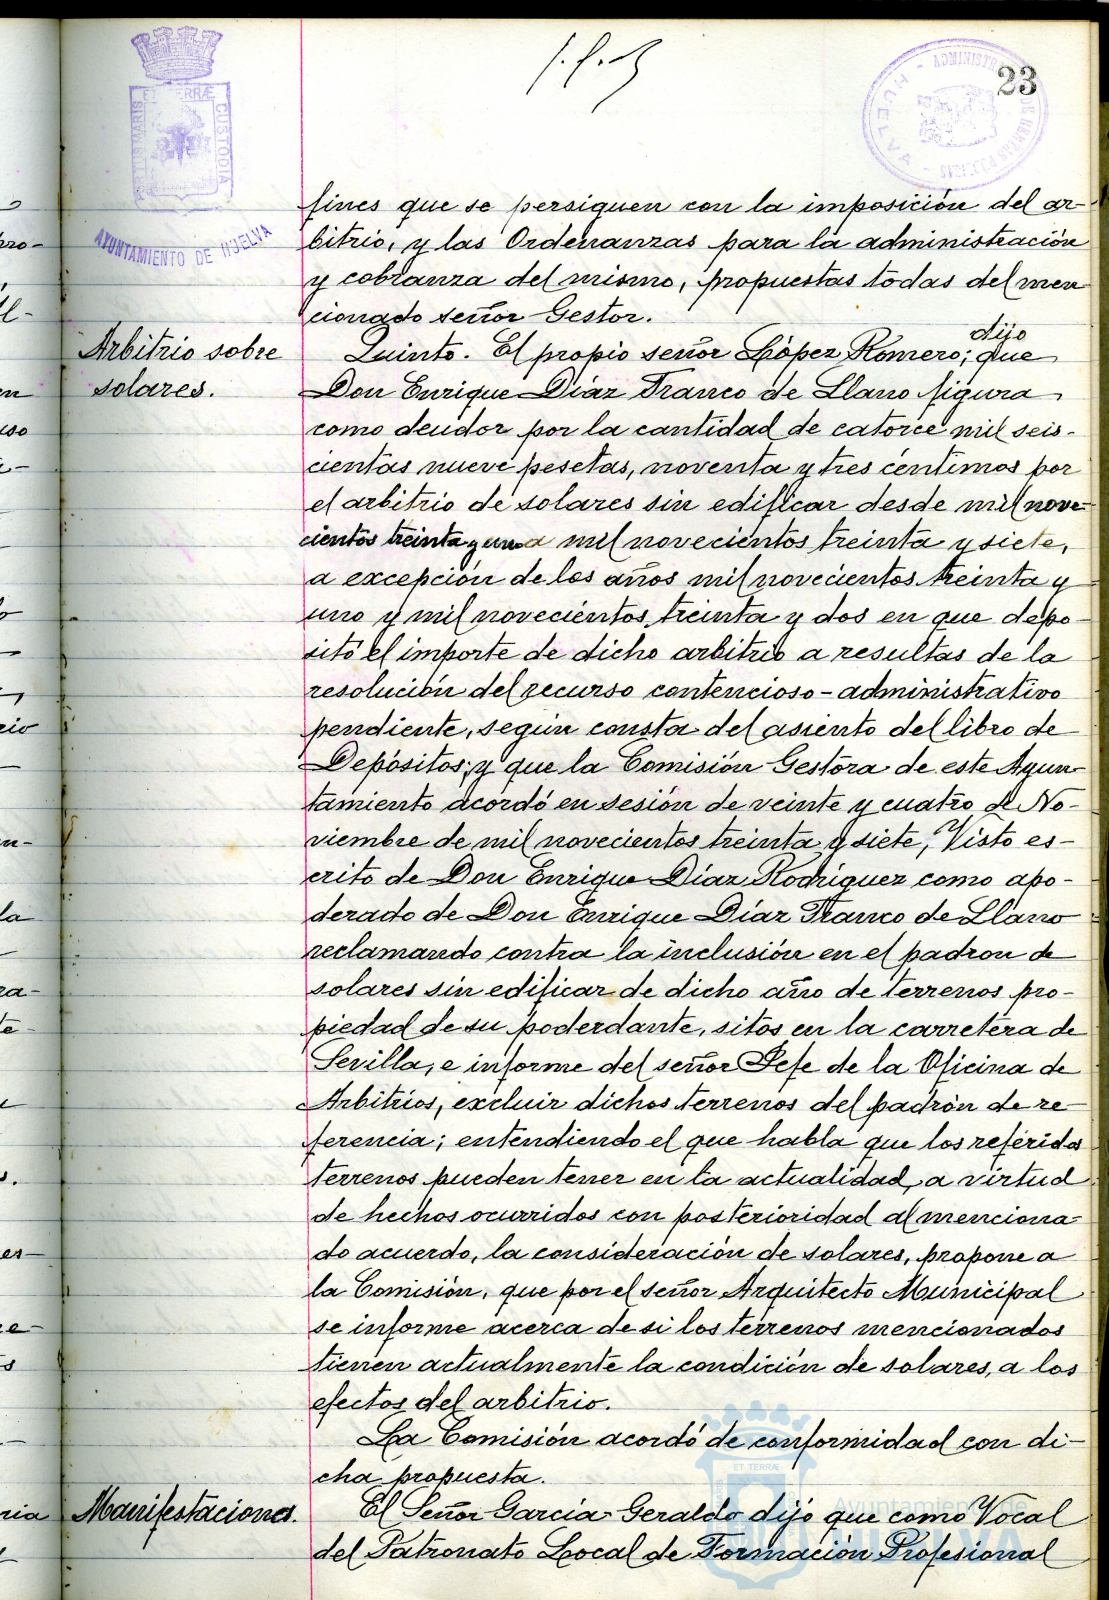 23
AYUNTAMIENTO DE HUELVA
fines que se persiguen con la imposición del ar-
bitrio, y las Ordenanzas para la administración
y cobranza del mismo, propuestas todas del men
cionado señor Gestor.
Arbitrio sobre
solares.
dijo
Quinto. El propio señor López Romero; que
Don Enrique Díaz Franco de Llano figura
como deudor por la cantidad de catorce mil seis-
cientas nueve pesetas, noventa y tres céntimos por
el arbitrio de solares sin edificar desde mil nove-
cientos treinta y uno a mil novecientos treinta y siete,
a excepción de los años mil novecientos treinta y
uno y mil novecientos treinta y dos en que depo-
sitó el importe de dicho arbitrio a resultas de la
resolución del recurso contencioso-administrativo
pendiente, según consta del asiento del libro de
Depósitos; y que la Comisión Gestora de este Ayun-
tamiento acordó en sesión de veinte y cuatro de No-
viembre de mil novecientos treinta y siete, Visto es-
crito de Don Enrique Díaz Rodríguez como apo-
derado de Don Enrique Díaz Franco de Llano
reclamando contra la inclusión en el padron de
solares sin edificar de dicho año de terrenos pro-
piedad de su poderdante, sitos en la carretera de
Sevilla, e informe del señor Jefe de la Oficina de
Arbitrios, excluir dichos terrenos del padrón de re-
ferencia; entendiendo el que habla que los referidos
terrenos pueden tener en la actualidad, a virtud
de hechos ocurridos con posterioridad al menciona-
do acuerdo, la consideración de solares, propone a
la Comisión, que por el señor Arquitecto Municipal
se informe acerca de si los terrenos mencionados
tienen actualmente la condición de solares, a los
efectos del arbitrio.
La Comisión acordó de conformidad con di-
cha propuesta.
Manifestaciones.
El Señor García-Geraldo dijo que como Vocal
del Patronato Local de Formación Profesional
Ayuntamiento de
HUELVA